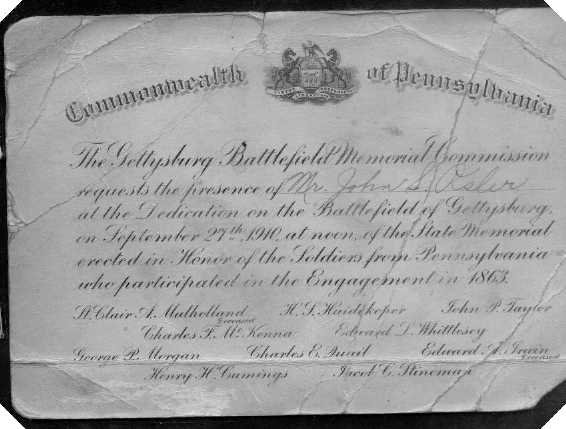 Commonwealth of Pennsylvania
The Gettysburg Battlefield Memorial Commission
requests the presence of Mr. John S.
at the Dedication on the Battlefield of Gettysburg,
on September 27th, 1910, at noon, of the State Memorial
erected in Honor of the Soldiers from Pennsylvania
who participated in the Engagement in 1863.
St. Clair A. Mulholland H. S. Huidekoper John P. Taylor
Deceased
Charles F. McKenna Edward L. Whittlesey
George P. Morgan Charles E. Quail Edward A. Irvin
Deceased
Henry H. Cumings Jacob C. Stineman